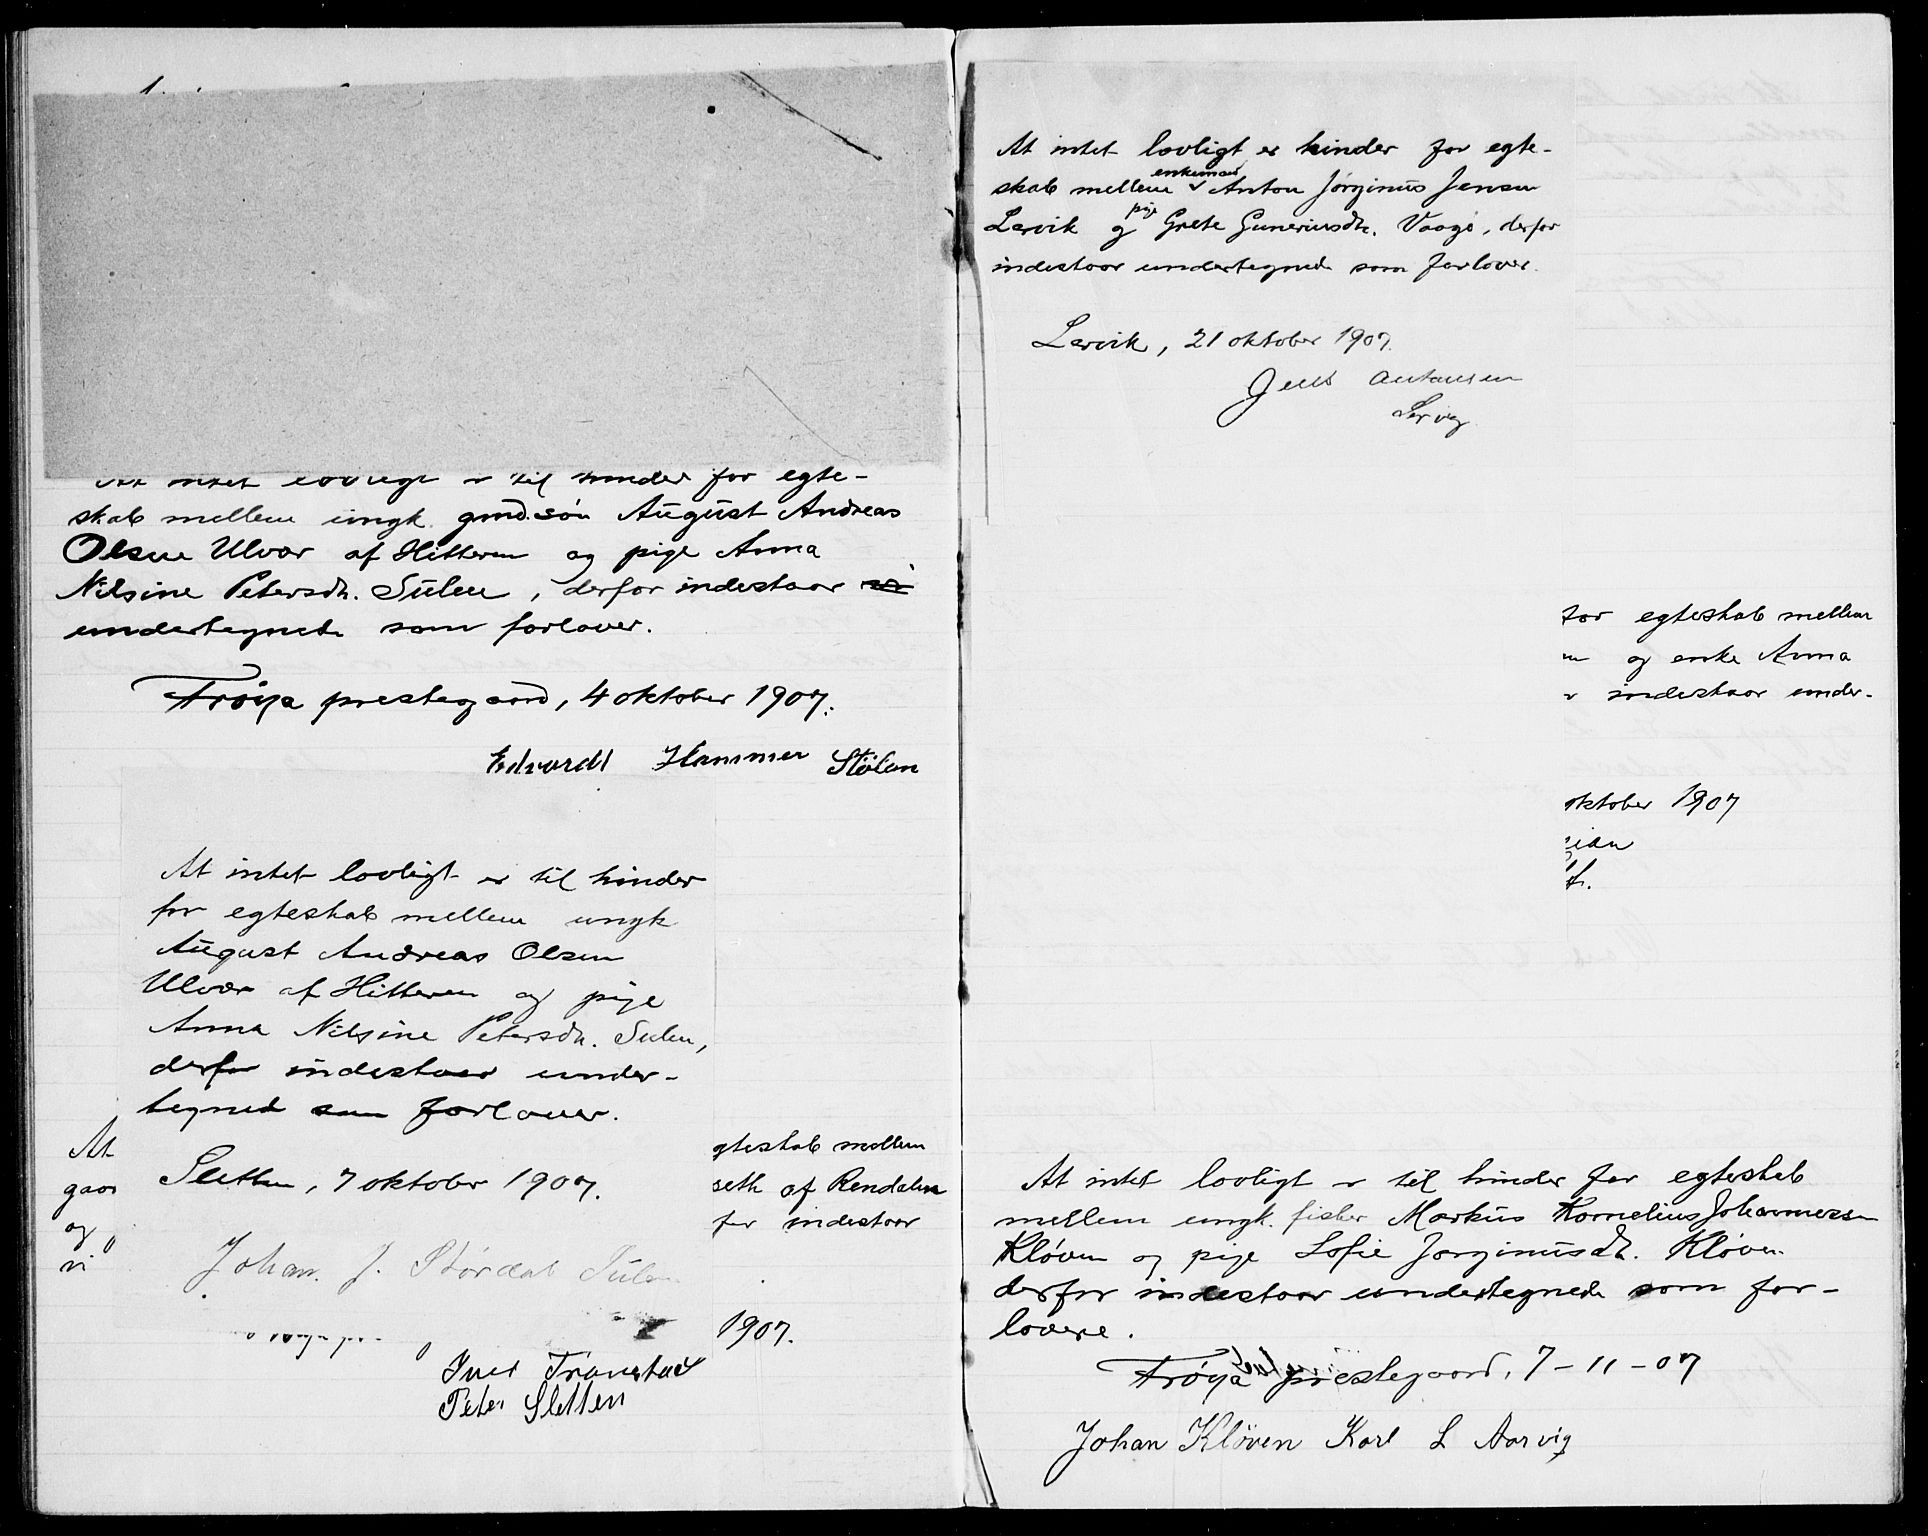 At intet lovligt er til hinder for egte-
skab mellem ungk. gmd.søn August Andreas
Olsen Ulvær af Hitteren og pige Anna
Nilsine Petersdtr. Sulen, derfor indestaar vi
undertegnede som forlover.
Frøya prestegaard, 4 oktober 1907.
Edvard Hammer Stølan
At intet lovligt er til hinder
for egteskab mellem ungk
August Andreas Olsen
Ulvær af Hitteren og pige
Anna Nilsine Petersdtr. Sulen,
derfor indestaar under-
tegned som forlover.
Sletten, 7 oktober 1907.
Johan J. Stördal Sulen
At
gaar
og
vi
gteskab mellem
seth af Rendalen
for indestaar
1907.
Iver Tranestad
Peter Sletten
At intet lovligt er hinder for egte-
skab mellem enkemand Anton Jørginus Jensen
Lervik og pige Grete Guneriusdtr. Vaagø, derfor
indestaar undertegnede som forlover.
Lervik, 21 oktober 1907.
Jens Antonsen
Lervig
for egteskab mellem
og enke Anna
r indestaar under-
oktober 1907
At intet lovligt er til hinder for egteskab
mellem ungk. fisker Markus Kornelius Johannessen
Kløven og pige Sofie Jørginusdtr. Kløven
derfor indestaar undertegnede som for-
lovere.
Frøya prestegaard, 7-11-07
Johan Klöven Karl L Aarvig